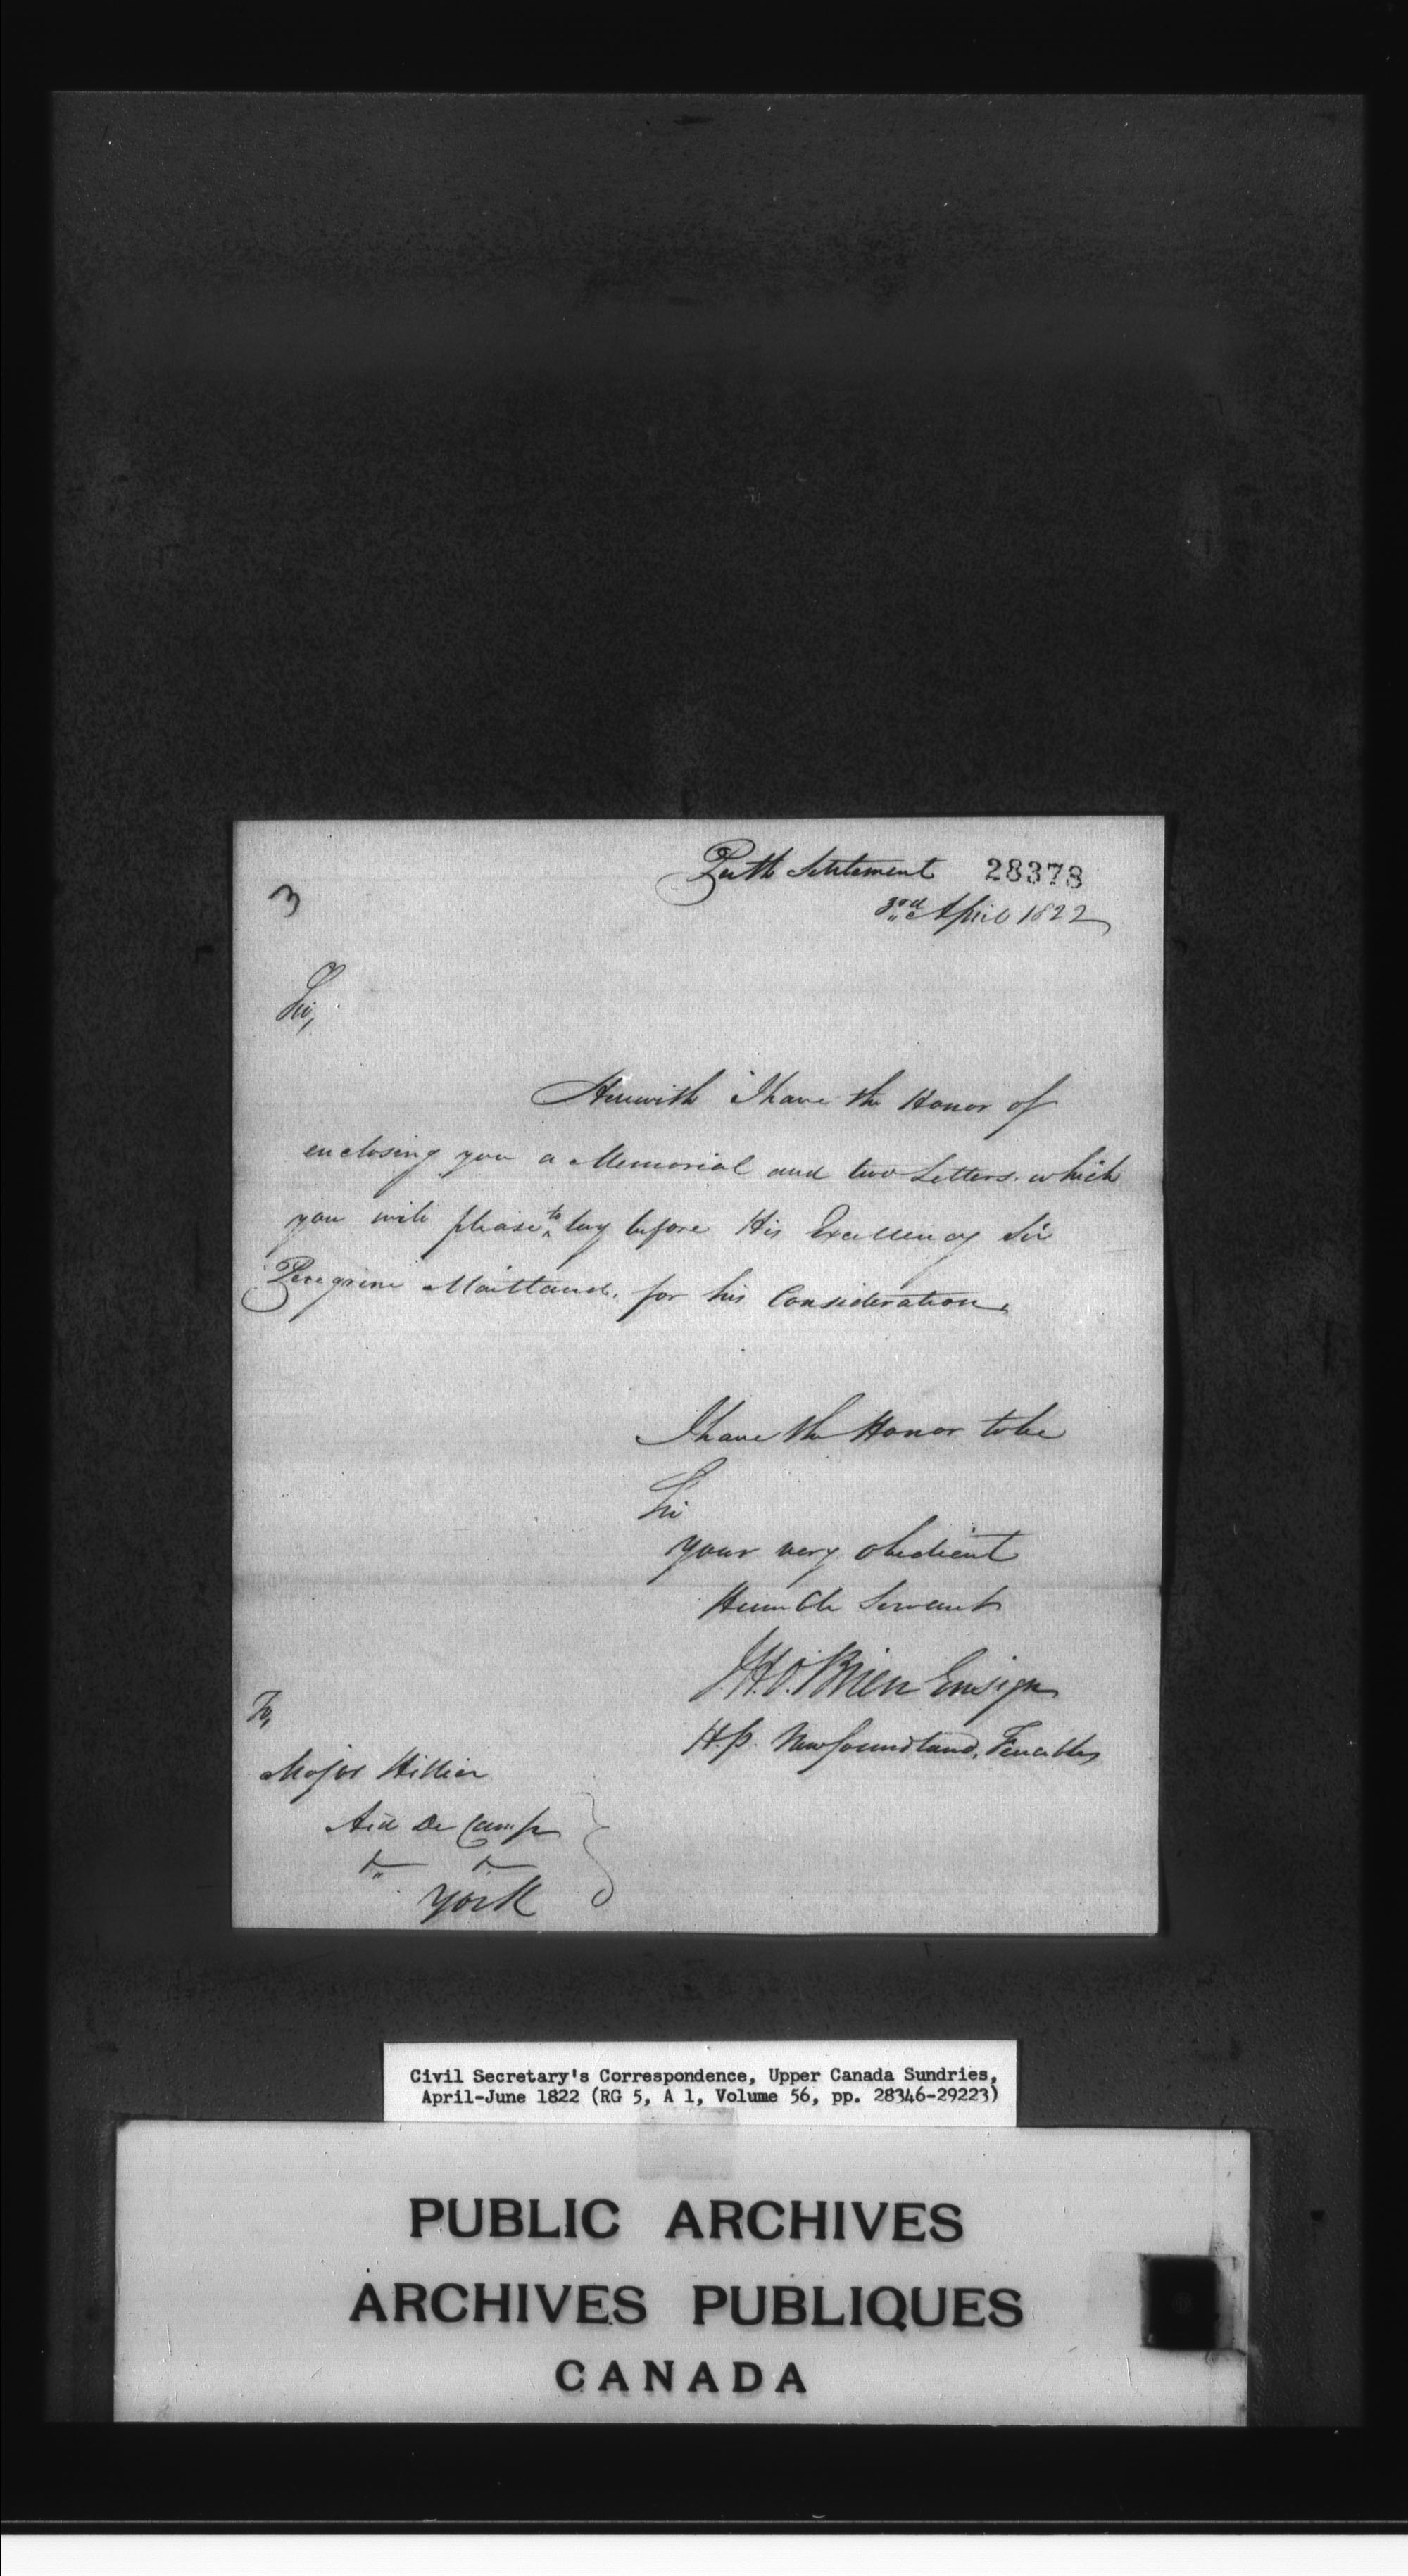 3
Perth Settlement 28378
3rd April 1822
Sir,
Herewith I have the Honor of
enclosing you a Memorial and two Letters which
you will please to lay before His Excellency Sir
Peregrine Maitland, for his Consideration,
I have the Honor to be
Sir
your very obedient
Humble Servant
J.H.O.Brien Ensign
H.P. Newfoundland, Fencibles
To,
Major Hillier
Aid De Camp
York
Civil Secretary's Correspondence, Upper Canada Sundries,
April-June 1822 (RG 5, A 1, Volume 56, pp. 28346-29223)
PUBLIC ARCHIVES
ARCHIVES PUBLIQUES
CANADA